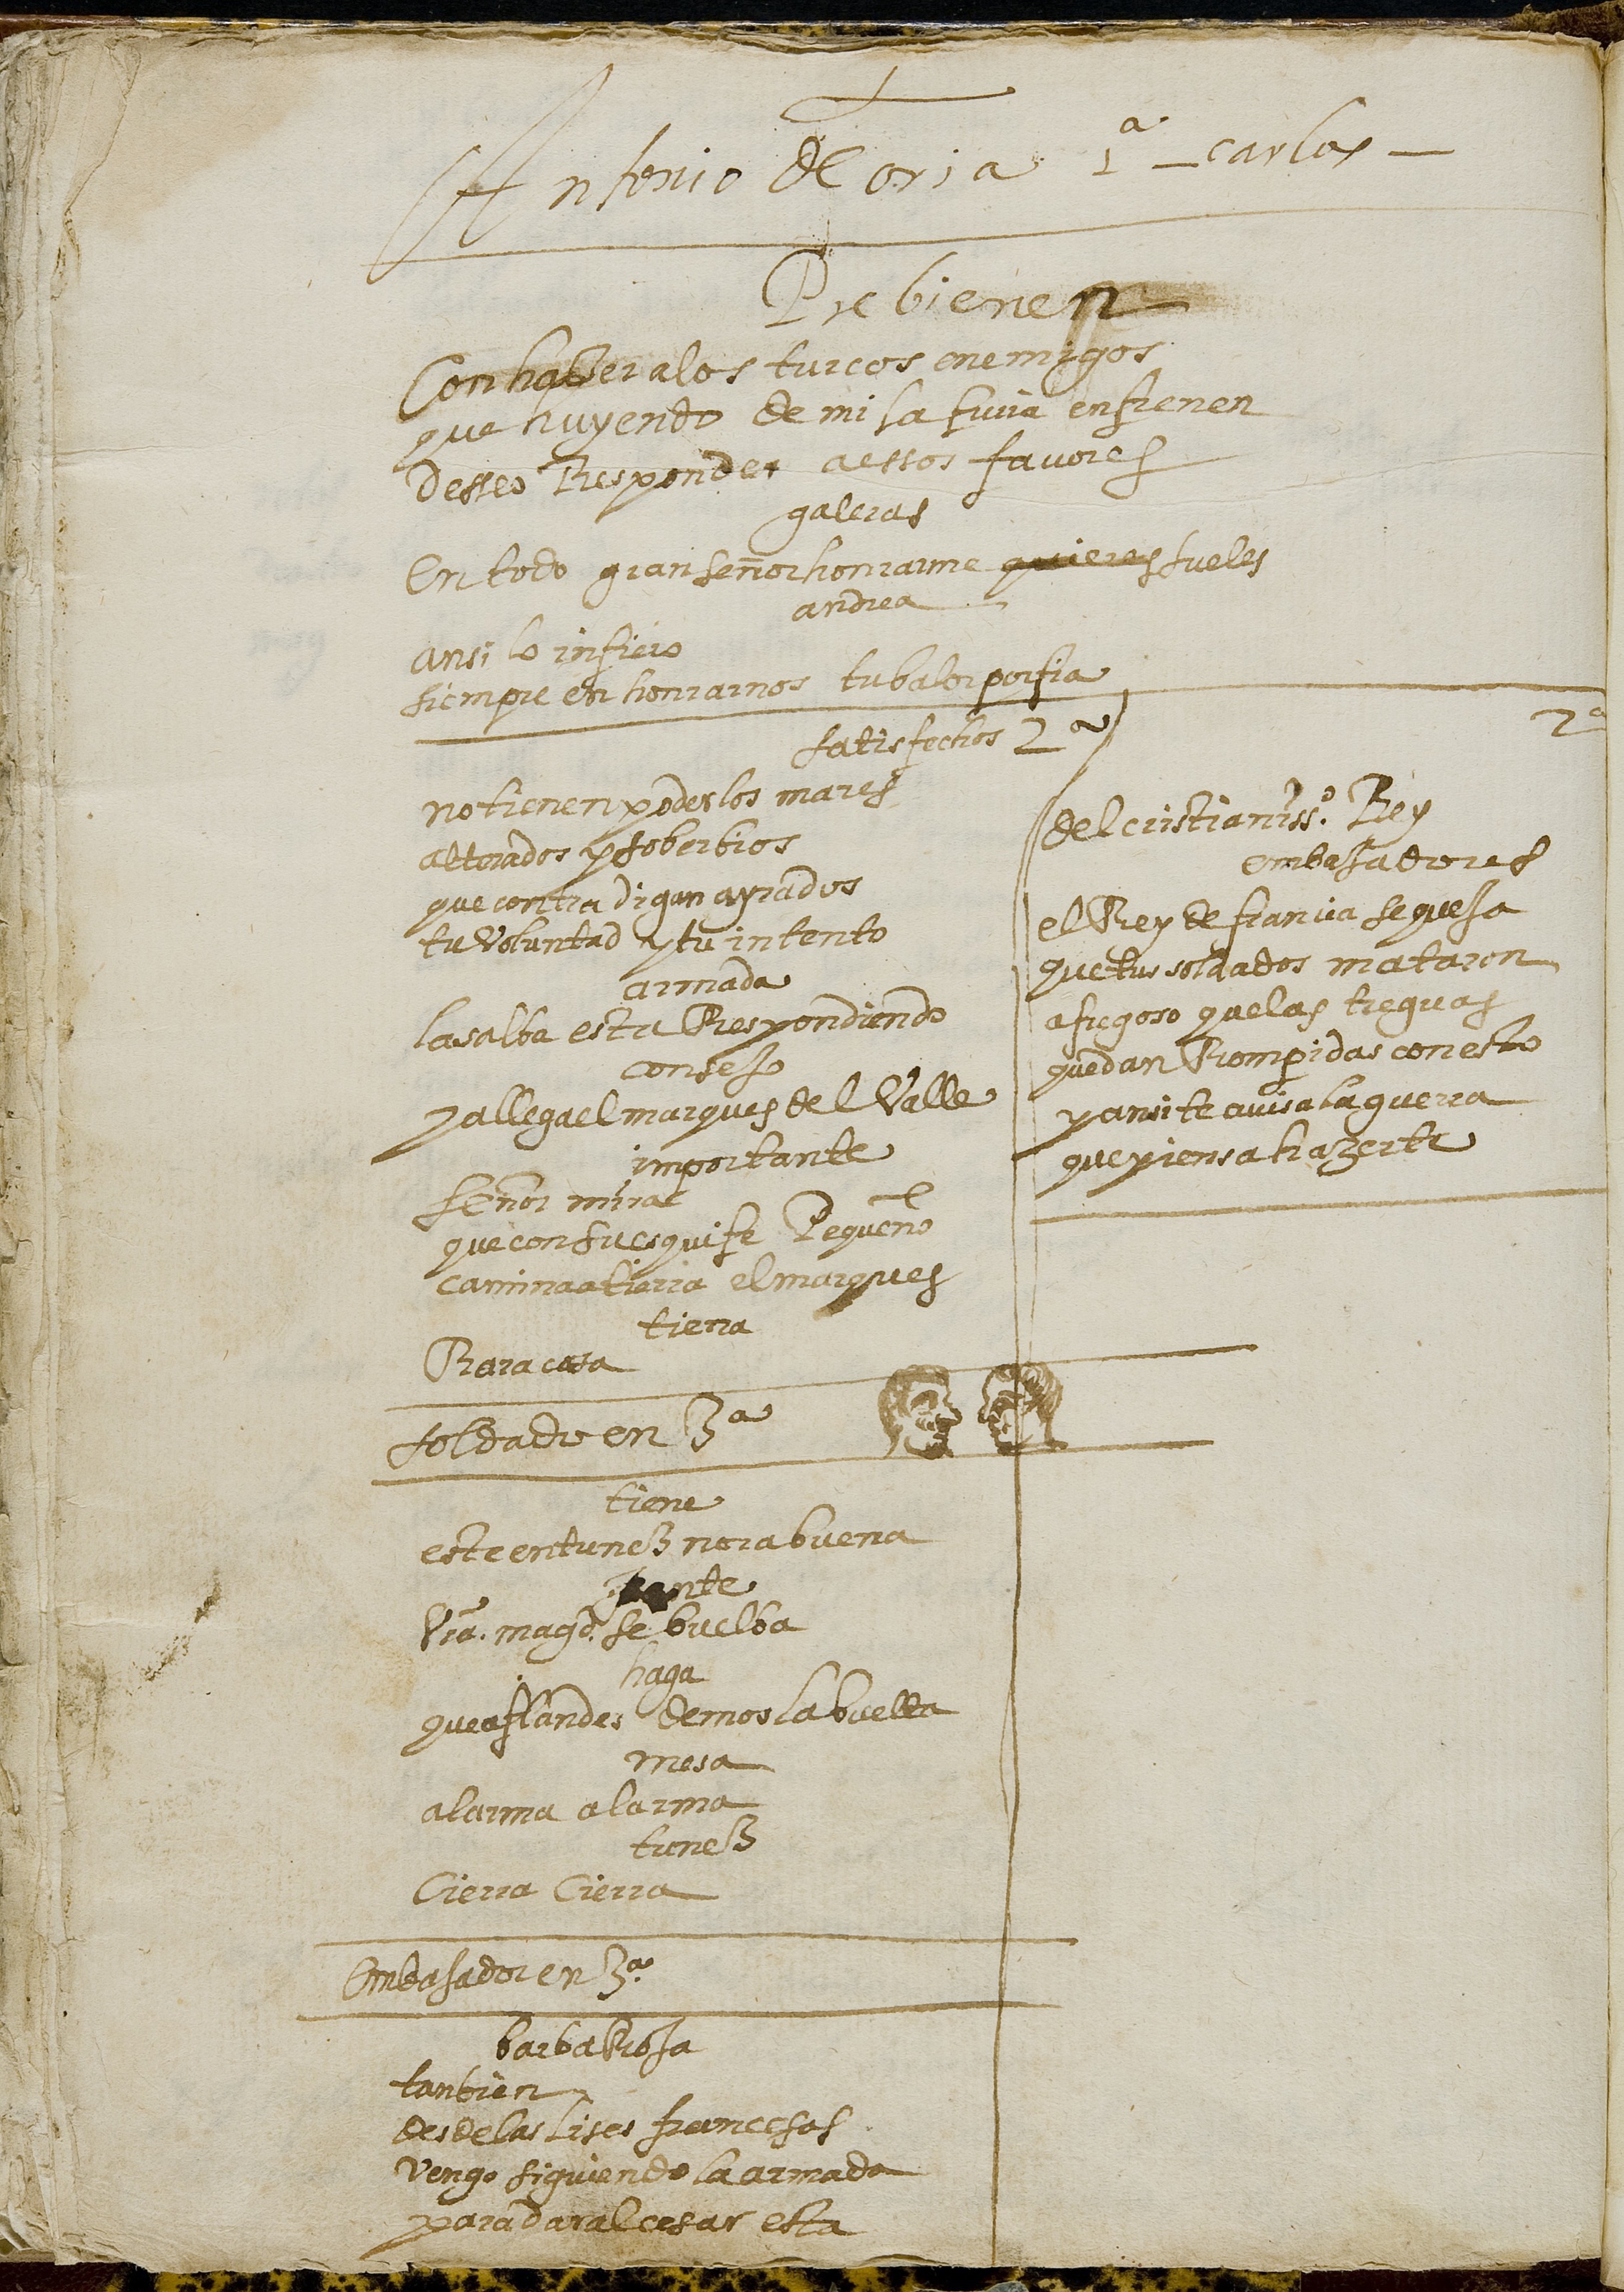 Antonio de Oria 1ª — carlos —
Prebienen
Con haser a los turcos enemigos
que huyendo de mi la furia enfrenen
desseo Responder a estos fauores
galeras
En todo gran señor honrarme quieres sueles
andrea
ansi lo infiero
siempre en honrarnos tu balor porfia
satisfechos 2ª
no tienen poder los mares
alterados y soberbios
que contradigan ayrados
tu Voluntad y tu intento
armada
la salba esta Respondiendo
consejo
ya llega el marques del Valle
importante
señor mirad
que con su esquife Pequeño
camina a tierra el marques
tierra
Rara cosa
2ª
del cristianiss.º Rey
embajadores
el Rey de francia se queja
que tus soldados mataron
a fregoso que las treguas
quedan Rompidas con esto
y ansi te auisa la guerra
que piensa hazerte
soldado en 3ª
tiene
este en tunez norabuena
Vra. magd. se buelba
haga
que a flandes demos la buelta
mesa
al arma al arma
tunez
Cierra Cierra
Embajador en 3ª
barbaRoja
tanbien
desde las lises francesas
Vengo siguiendo la armada
para dar al cesar esta